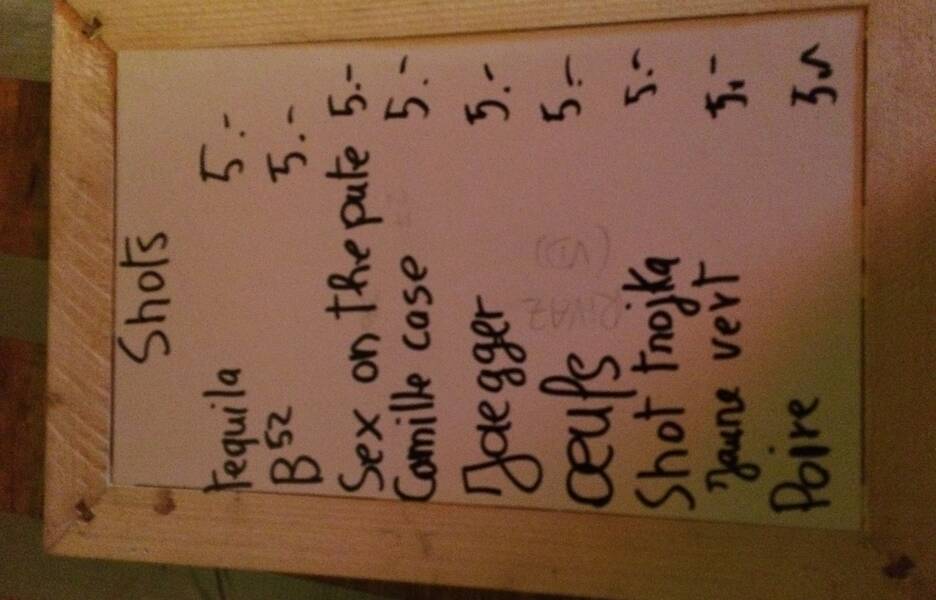 Shots
Tequila 5.-
B52 5.-
Sex on the pute 5.-
Camille case 5.-
Jaegger 5.-
Œufs 5.-
Shot tnojka 5.-
Jaune vert 5.-
Poire
RIVAZ
(VD)